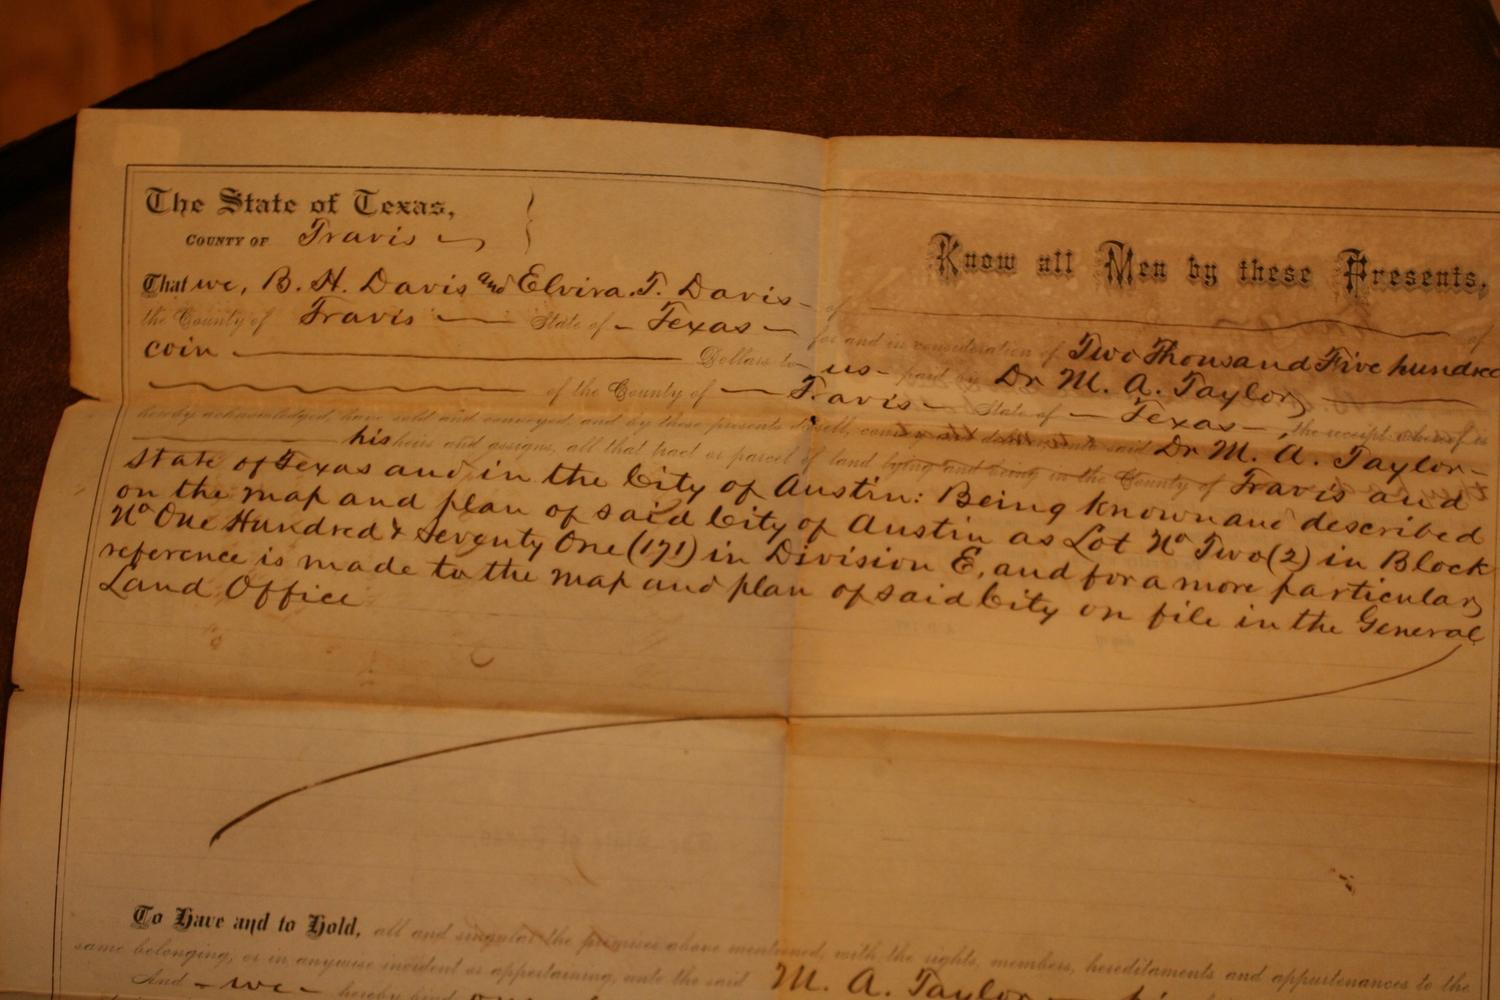 The State of Texas,
COUNTY OF Travis
Know all Men by these Presents,
That we, B. H. Davis and Elvira. T. Davis - of of
the County of Travis State of - Texas - for and in consideration of Two Thousand Five hundred
coin Dollars to us - paid by Dr M. A. Taylor
of the County of Travis - State of - Texas -, the receipt whereof is
hereby acknowledged, have sold and conveyed, and by these presents do sell, unto said Dr M. A. Taylor -
his heirs and assigns, all that tract or parcel of land lying and being in the County of Travis and
State of Texas and in the City of Austin: Being known and described
on the map and plan of said City of Austin as Lot No Two (2) in Block
No One Hundred & Seventy One (171) in Division E, and for a more particular
reference is made to the map and plan of said City on file in the General
Land Office
To Have and to Hold, all and singular the premises above mentioned, with the rights, members, hereditaments and appurtenances to the
same belonging, or in anywise incident or appertaining, unto the said M. A. Taylor
And - we - hereby bind